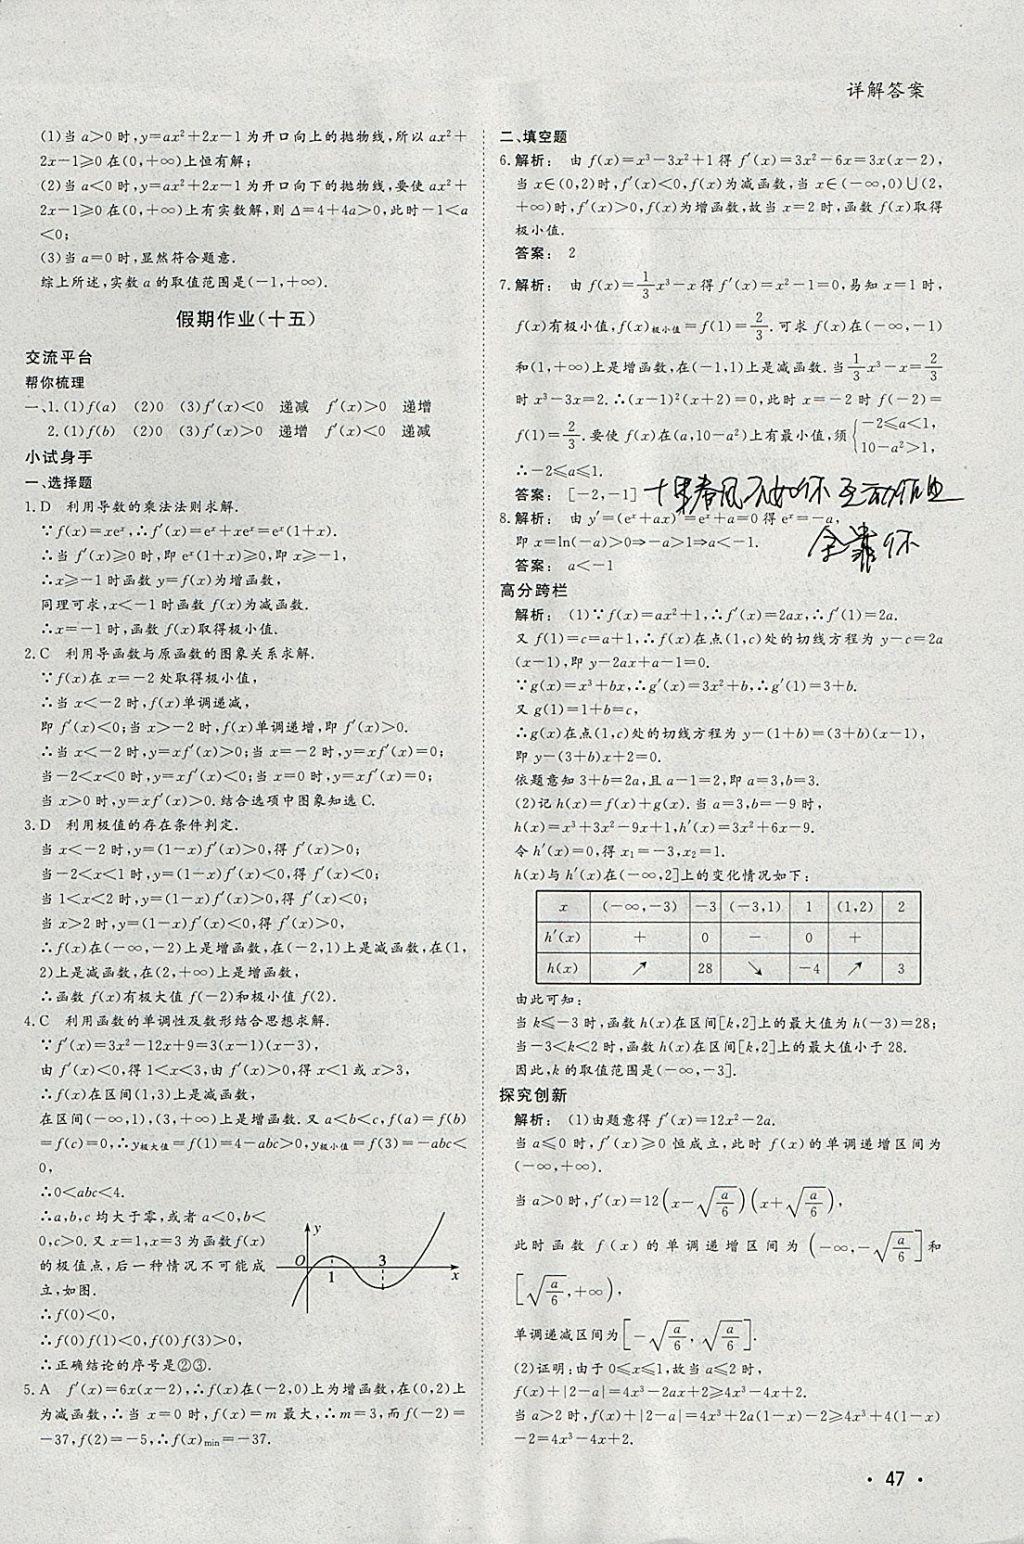 详解答案
(1)当 a>0 时,y=ax²+2x-1 为开口向上的抛物线,所以 ax²+
2x-1≥0 在(0,+∞)上恒有解;
(2)当 a<0 时,y=ax²+2x-1 为开口向下的抛物线,要使 ax²+
2x-1≥0 在(0,+∞)上有实数解,则 Δ=4+4a>0,此时-1<a
<0;
(3)当 a=0 时,显然符合题意.
综上所述,实数 a 的取值范围是(-1,+∞).
假期作业(十五)
交流平台
帮你梳理
一、1.(1)f(a) (2)0 (3)f′(x)<0 递减 f′(x)>0 递增
2.(1)f(b) (2)0 (3)f′(x)>0 递增 f′(x)<0 递减
小试身手
一、选择题
1.D 利用导数的乘法法则求解.
∵f(x)=xeˣ,∴f′(x)=eˣ+xeˣ=eˣ(1+x).
∴当 f′(x)≥0 时,即 eˣ(1+x)≥0,即 x≥-1,
∴x≥-1 时函数 y=f(x)为增函数,
同理可求,x<-1 时函数 f(x)为减函数.
∴x=-1 时,函数 f(x)取得极小值.
2.C 利用导函数与原函数的图象关系求解.
∵f(x)在 x=-2 处取得极小值,
∴当 x<-2 时,f(x)单调递减,
即 f′(x)<0;当 x>-2 时,f(x)单调递增,即 f′(x)>0.
∴当 x<-2 时,y=xf′(x)>0;当 x=-2 时,y=xf′(x)=0;
当-2<x<0 时,y=xf′(x)<0;当 x=0 时,y=xf′(x)=0;
当 x>0 时,y=xf′(x)>0.结合选项中图象知选 C.
3.D 利用极值的存在条件判定.
当 x<-2 时,y=(1-x)f′(x)>0,得 f′(x)>0;
当-2<x<1 时,y=(1-x)f′(x)<0,得 f′(x)<0;
当 1<x<2 时,y=(1-x)f′(x)>0,得 f′(x)<0;
当 x>2 时,y=(1-x)f′(x)<0,得 f′(x)>0,
∴f(x)在(-∞,-2)上是增函数,在(-2,1)上是减函数,在(1,
2)上是减函数,在(2,+∞)上是增函数,
∴函数 f(x)有极大值 f(-2)和极小值 f(2).
4.C 利用函数的单调性及数形结合思想求解.
∵f′(x)=3x²-12x+9=3(x-1)(x-3),
由 f′(x)<0,得 1<x<3,由 f′(x)>0,得 x<1 或 x>3,
∴f(x)在区间(1,3)上是减函数,
在区间(-∞,1),(3,+∞)上是增函数.又 a<b<c,f(a)=f(b)
=f(c)=0,∴y极大值=f(1)=4-abc>0,y极小值=f(3)=-abc<
0,
∴0<abc<4.
∴a,b,c 均大于零,或者 a<0,b<
0,c>0.又 x=1,x=3 为函数f(x)
的极值点,后一种情况不可能成
立,如图.
y
O 1 3 x
∴f(0)<0,
∴f(0)f(1)<0,f(0)f(3)>0,
∴正确结论的序号是②③.
5.A f′(x)=6x(x-2),∴f(x)在(-2,0)上为增函数,在(0,2)上
为减函数,∴当 x=0 时,f(x)=m 最大,∴m=3,而f(-2)=
-37,f(2)=-5,∴f(x)min=-37.
二、填空题
6.解析: 由 f(x)=x³-3x²+1得 f′(x)=3x²-6x=3x(x-2),
当 x∈(0,2)时,f′(x)<0,f(x)为减函数,当 x∈(-∞,0)∪(2,
+∞)时,f′(x)>0,f(x)为增函数,故当 x=2 时,函数 f(x)取得
极小值.
答案: 2
7.解析: 由 f(x)=1/3x³-x 得 f′(x)=x²-1=0,易知 x=1 时,
f(x)有极小值,f(x)极小值=f(1)=-2/3.可求 f(x)在(-∞,-1)
和(1,+∞)上是增函数,在(-1,1)上是减函数.当 1/3x³-x=-2/3
时 x³-3x=2.∴(x-1)²(x+2)=0,可知当 x=-2 时 f(-2)=
f(1)=-2/3.要使 f(x)在(a,10-a²)上有最小值,须{-2≤a<1,
10-a²>1,
∴-2≤a≤1.
答案: [-2,-1] 十里春风不如你 互动作业
8.解析: 由 y′=(eˣ+ax)′=eˣ+a=0 得 eˣ=-a,
即 x=ln(-a)>0⇒-a>1⇒a<-1. 全靠你
答案: a<-1
高分跨栏
解析: (1)∵f(x)=ax²+1,∴f′(x)=2ax,∴f′(1)=2a.
又 f(1)=c=a+1,∴f(x)在点(1,c)处的切线方程为 y-c=2a
(x-1),即 y-2ax+a-1=0.
∵g(x)=x³+bx,∴g′(x)=3x²+b,∴g′(1)=3+b.
又 g(1)=1+b=c,
∴g(x)在点(1,c)处的切线方程为 y-(1+b)=(3+b)(x-1),
即 y-(3+b)x+2=0.
依题意知 3+b=2a,且 a-1=2,即 a=3,b=3.
(2)记 h(x)=f(x)+g(x).当 a=3,b=-9 时,
h(x)=x³+3x²-9x+1,h′(x)=3x²+6x-9.
令 h′(x)=0,得 x₁=-3,x₂=1.
h(x)与 h′(x)在(-∞,2]上的变化情况如下:
x (-∞,-3) -3 (-3,1) 1 (1,2) 2
h′(x) + 0 - 0 +
h(x) ↗ 28 ↘ -4 ↗ 3
由此可知:
当 k≤-3 时,函数 h(x)在区间[k,2]上的最大值为 h(-3)=28;
当-3<k<2 时,函数 h(x)在区间[k,2]上的最大值小于 28.
因此,k 的取值范围是(-∞,-3].
探究创新
解析: (1)由题意得 f′(x)=12x²-2a.
当 a≤0 时,f′(x)≥0 恒成立,此时 f(x)的单调递增区间为
(-∞,+∞).
当 a>0 时,f′(x)=12(x-√(a/6))(x+√(a/6)),
此时函数 f(x)的单调递增区间为(-∞,-√(a/6)]和
[√(a/6),+∞),
单调递减区间为[-√(a/6),√(a/6)].
(2)证明:由于 0≤x≤1,故当 a≤2 时,
f(x)+|2-a|=4x³-2ax+2≥4x³-4x+2.
当 a>2 时,f(x)+|2-a|=4x³+2a(1-x)-2≥4x³+4(1-x)
-2=4x³-4x+2.
· 47 ·